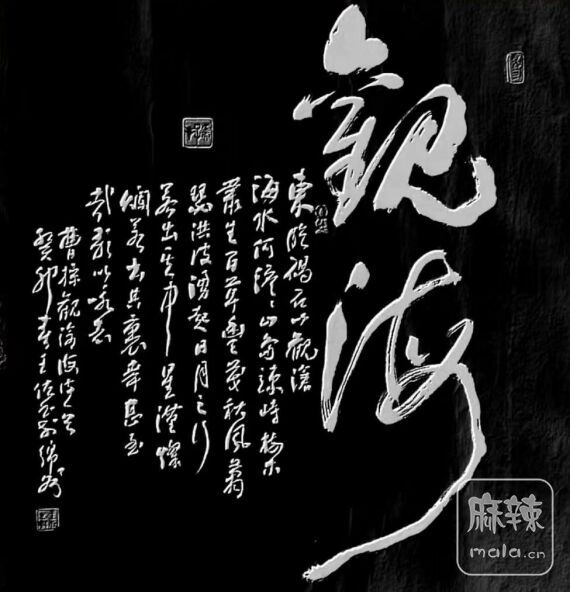 觀海
東臨碣石以觀滄
海水何澹〻山島竦峙樹木
叢生百草豐茂秋風蕭
瑟洪波湧起日月之行
若出其中星漢燦
爛若出其裏幸甚至
哉歌以詠志
曹操觀滄海
癸卯春王
麻辣
mala.cn